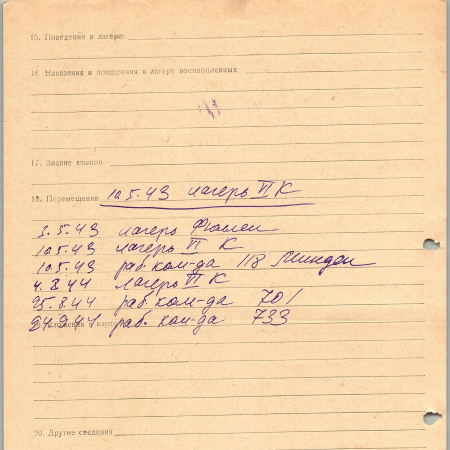 15. Поведение в лагере:
16. Наказания и поощрения в лагере военнопленных
17. Знание языков
18. Перемещения 10.5.43 лагерь VI К
3.5.43 лагерь Фюллен
10.5.43 лагерь VI К
10.5.43 раб. ком-да 118 Минден
4.8.44 лагерь VI К
25.8.44 раб. ком-да 701
24.9.44 раб. ком-да 733
20. Другие сведения